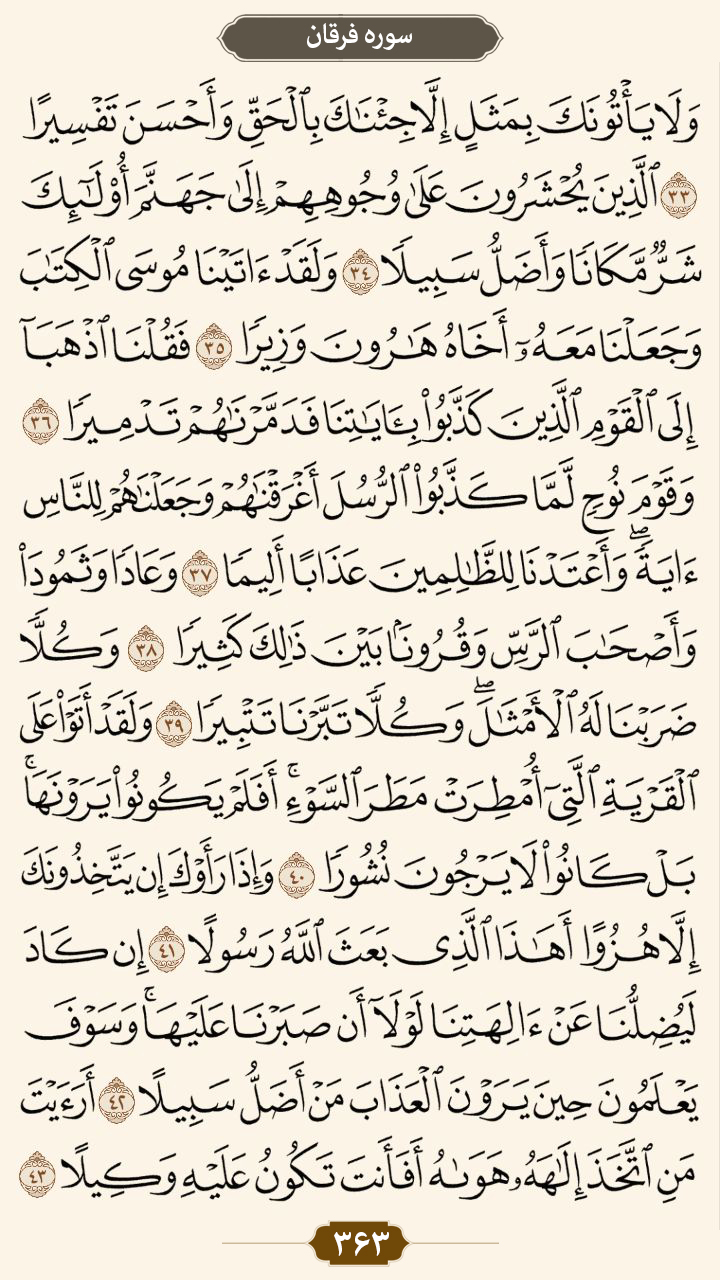 سوره فرقان
وَلَا يَأْتُونَكَ بِمَثَلٍ إِلَّا جِئْنَٰكَ بِٱلْحَقِّ وَأَحْسَنَ تَفْسِيرًا
٣٣ ٱلَّذِينَ يُحْشَرُونَ عَلَىٰ وُجُوهِهِمْ إِلَىٰ جَهَنَّمَ أُو۟لَٰٓئِكَ
شَرٌّ مَّكَانًا وَأَضَلُّ سَبِيلًا ٣٤ وَلَقَدْ ءَاتَيْنَا مُوسَى ٱلْكِتَٰبَ
وَجَعَلْنَا مَعَهُۥٓ أَخَاهُ هَٰرُونَ وَزِيرًا ٣٥ فَقُلْنَا ٱذْهَبَآ
إِلَى ٱلْقَوْمِ ٱلَّذِينَ كَذَّبُوا۟ بِـَٔايَٰتِنَا فَدَمَّرْنَٰهُمْ تَدْمِيرًا ٣٦
وَقَوْمَ نُوحٍ لَّمَّا كَذَّبُوا۟ ٱلرُّسُلَ أَغْرَقْنَٰهُمْ وَجَعَلْنَٰهُمْ لِلنَّاسِ
ءَايَةً ۖ وَأَعْتَدْنَا لِلظَّٰلِمِينَ عَذَابًا أَلِيمًا ٣٧ وَعَادًا وَثَمُودَا۟
وَأَصْحَٰبَ ٱلرَّسِّ وَقُرُونًۢا بَيْنَ ذَٰلِكَ كَثِيرًا ٣٨ وَكُلًّا
ضَرَبْنَا لَهُ ٱلْأَمْثَٰلَ ۖ وَكُلًّا تَبَّرْنَا تَتْبِيرًا ٣٩ وَلَقَدْ أَتَوْا۟ عَلَى
ٱلْقَرْيَةِ ٱلَّتِىٓ أُمْطِرَتْ مَطَرَ ٱلسَّوْءِ ۚ أَفَلَمْ يَكُونُوا۟ يَرَوْنَهَا ۚ
بَلْ كَانُوا۟ لَا يَرْجُونَ نُشُورًا ٤٠ وَإِذَا رَأَوْكَ إِن يَتَّخِذُونَكَ
إِلَّا هُزُوًا أَهَٰذَا ٱلَّذِى بَعَثَ ٱللَّهُ رَسُولًا ٤١ إِن كَادَ
لَيُضِلُّنَا عَنْ ءَالِهَتِنَا لَوْلَآ أَن صَبَرْنَا عَلَيْهَا ۚ وَسَوْفَ
يَعْلَمُونَ حِينَ يَرَوْنَ ٱلْعَذَابَ مَنْ أَضَلُّ سَبِيلًا ٤٢ أَرَءَيْتَ
مَنِ ٱتَّخَذَ إِلَٰهَهُۥ هَوَىٰهُ أَفَأَنتَ تَكُونُ عَلَيْهِ وَكِيلًا ٤٣
۳۶۳